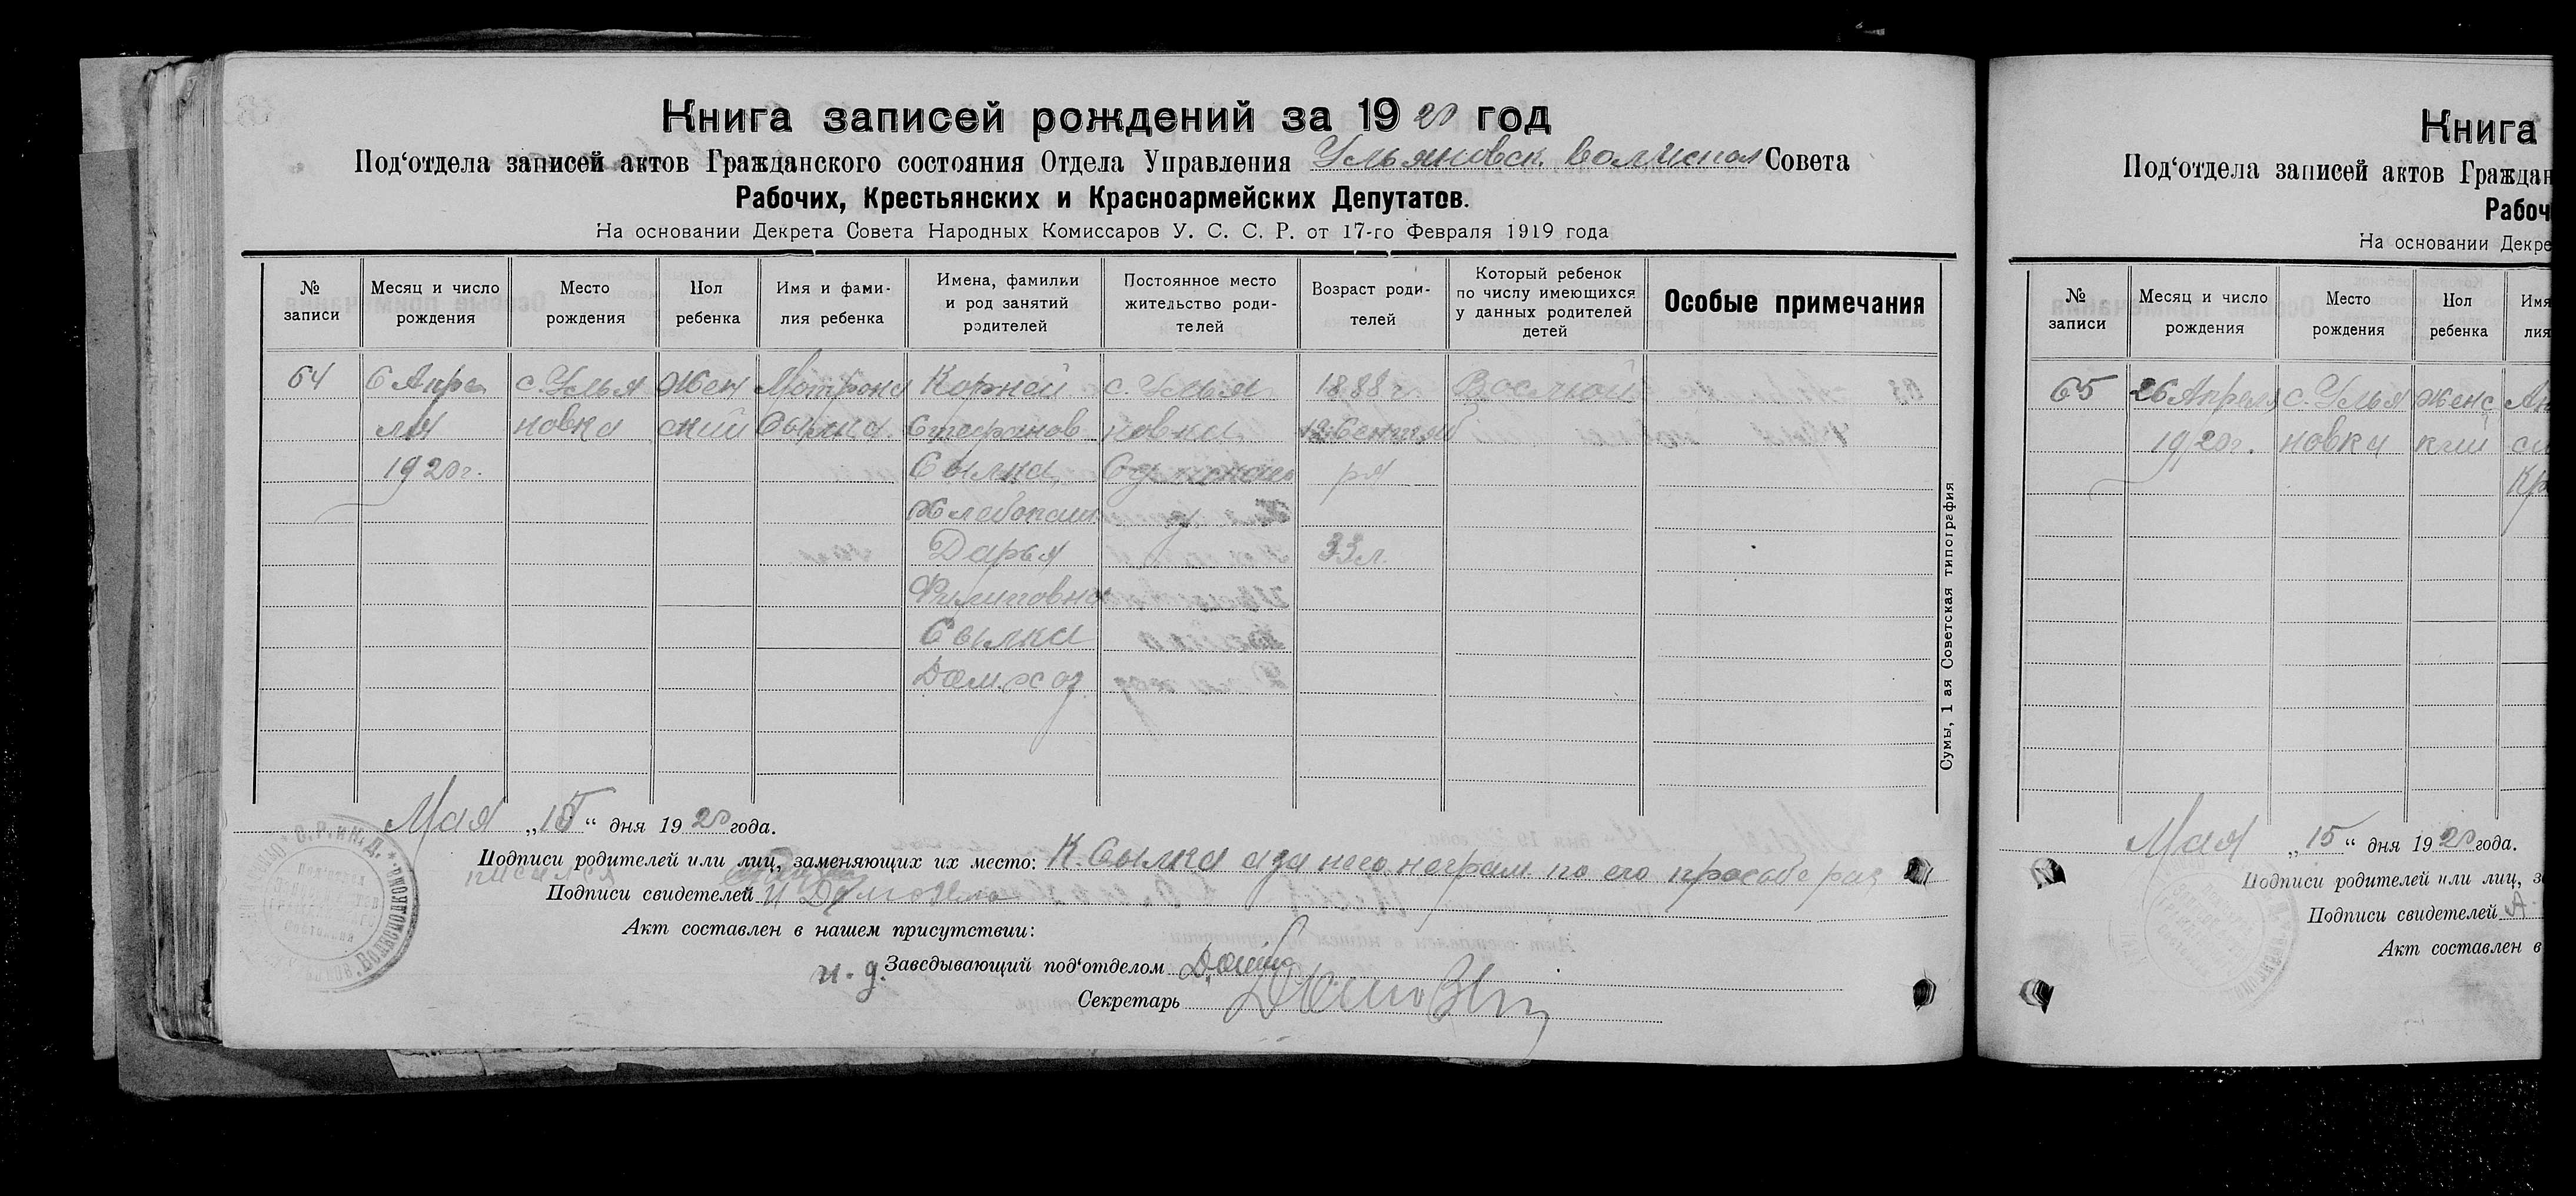 Книга записей рождений за 1920 год
Под'отдела записей актов Гражданского состояния Отдела Управления Ульяновск. Волиспол Совета
Рабочих, Крестьянских и Красноармейских Депутатов.
На основании Декрета Совета Народных Комиссаров У. С. С. Р. от 17-го Февраля 1919 года
№ записи
Месяц и число рождения
Место рождения
Пол ребенка
Имя и фами-
лия ребенка
Имена, фамилии
и род занятий
родителей
Постоянное место
жительство роди-
телей
Возраст роди-
телей
Который ребенок
по числу имеющихся
у данных родителей
детей
Особые примечания
64
6 Апре
ля
1920г.
с. Улья
новка
Жен
ский
Мотрона
Сылка
Корней
Стефанов
Сылка
Хлебопаш
Дарья
Филиповна
Сылка
Дом. хоз.
с. Улья
новка
Сумы, 1 ая Советская типография
1888 г.
ря
33 л.
Мая „15“ дня 1920 года.
Подписи родителей или лиц, заменяющих их место: К. Сылка а за него неграм по его просьбе рас
писался
Подписи свидетелей
Акт составлен в нашем присутствии:
и. д. Заведывающий под'отделом
Секретарь
С. Р. и К. Д.
Волисполком
Книга
Под'отдела записей актов Граждан
Рабоч
На основании Декре
№ записи
Месяц и число рождения
Место рождения
Пол ребенка
Имя
лия
65
26 Апреля
1920г.
с. Улья
новка
женс
кий
Мая „15“ дня 1920 года.
Подписи родителей или лиц, з
Подписи свидетелей А.
Акт составлен в